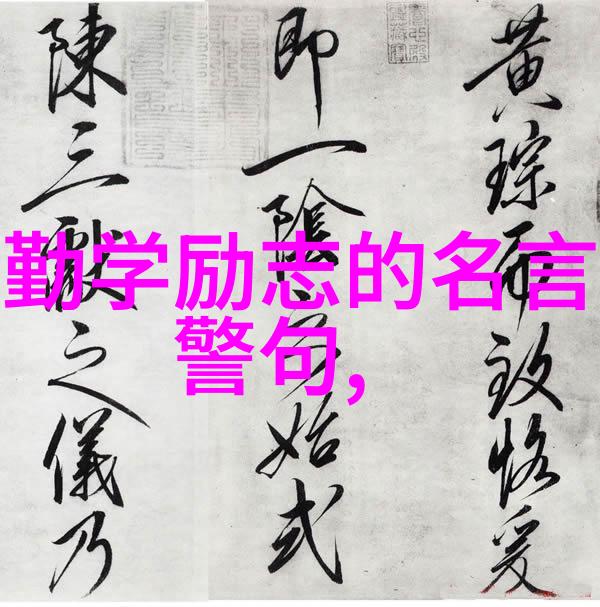 勤学励志的名言
警句,
黄琮而致恪爰
即一陰始式
陳三獻之儀乃